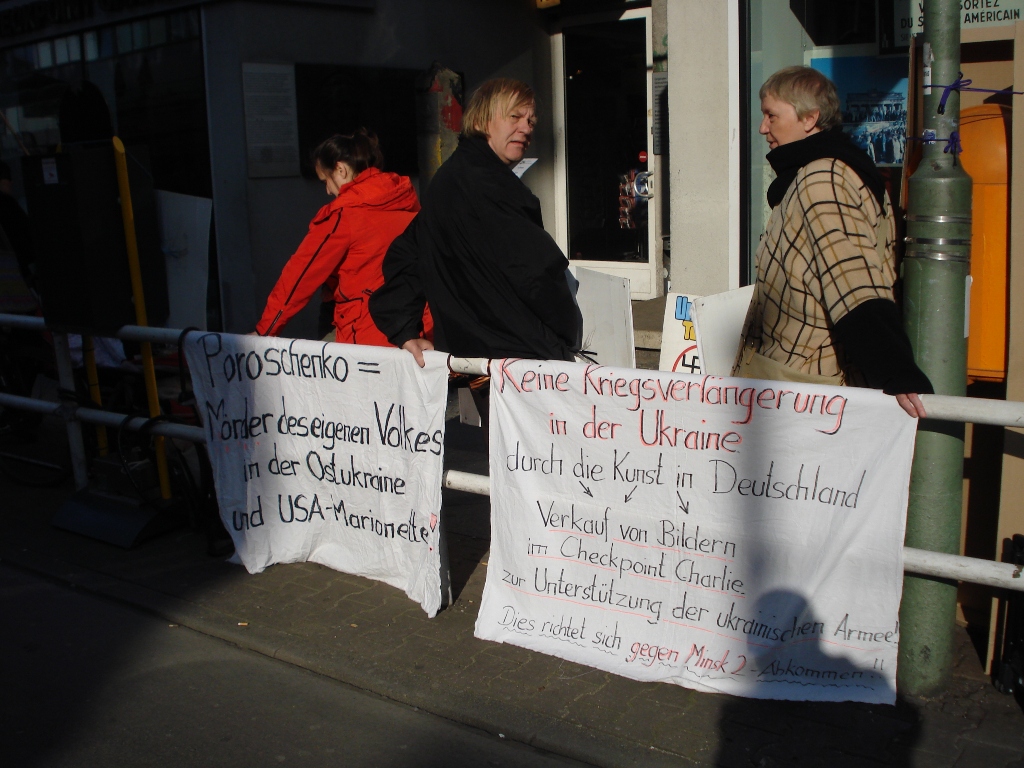 Poroschenko =
Mörder des eigenen Volkes
in der Ostukraine
und USA-Marionette!
Keine Kriegsverlängerung
in der Ukraine
durch die Kunst in Deutschland
Verkauf von Bildern
im Checkpoint Charlie
zur Unterstützung der ukrainischen Armee!
Dies richtet sich gegen Minsk 2-Abkommen!!
SORTEZ
DU S AMÉRICAIN